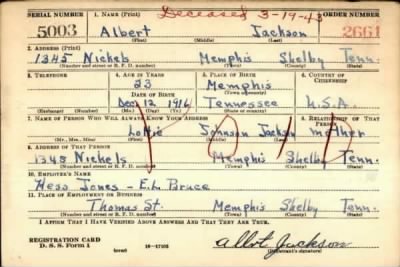 SERIAL NUMBER 1. NAME (Print) Deceased 3-19-43 ORDER NUMBER
5003 Albert Jackson 2661
(First) (Middle) (Last)
2. ADDRESS (Print)
1345 Nichels Memphis Shelby Tenn.
(Number and street or R. F. D. number) (Town) (County) (State)
3. TELEPHONE 4. AGE IN YEARS 5. PLACE OF BIRTH 6. COUNTRY OF CITIZENSHIP
23 Memphis
DATE OF BIRTH (Town or county)
Dec. 12 1916 Tennessee U.S.A.
(Exchange) (Number) (Mo.) (Day) (Yr.) (State or country)
7. NAME OF PERSON WHO WILL ALWAYS KNOW YOUR ADDRESS 8. RELATIONSHIP OF THAT PERSON
Johnson Jackson mother
(Mr., Mrs., Miss) (First) (Middle) (Last)
9. ADDRESS OF THAT PERSON
1345 Nichels Memphis Shelby Tenn.
(Number and street or R. F. D. number) (Town) (County) (State)
10. EMPLOYER'S NAME
Hess Jones - E.L. Bruce
11. PLACE OF EMPLOYMENT OR BUSINESS
Thomas St. Memphis Shelby Tenn.
(Number and street or R. F. D. number) (Town) (County) (State)
I AFFIRM THAT I HAVE VERIFIED ABOVE ANSWERS AND THAT THEY ARE TRUE.
REGISTRATION CARD
D. S. S. Form 1 (over) 16-17105 Albert Jackson
(Registrant's signature)